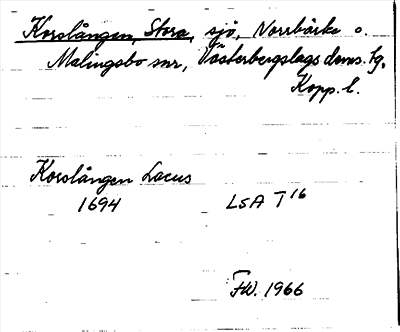 Korslången, Stora, sjö, Norrbärke o.
Malingsbo snr, Västerbergslags doms. tg.
Kopp. l.
Korslången Lacus
1694 LSA T16
FW. 1966